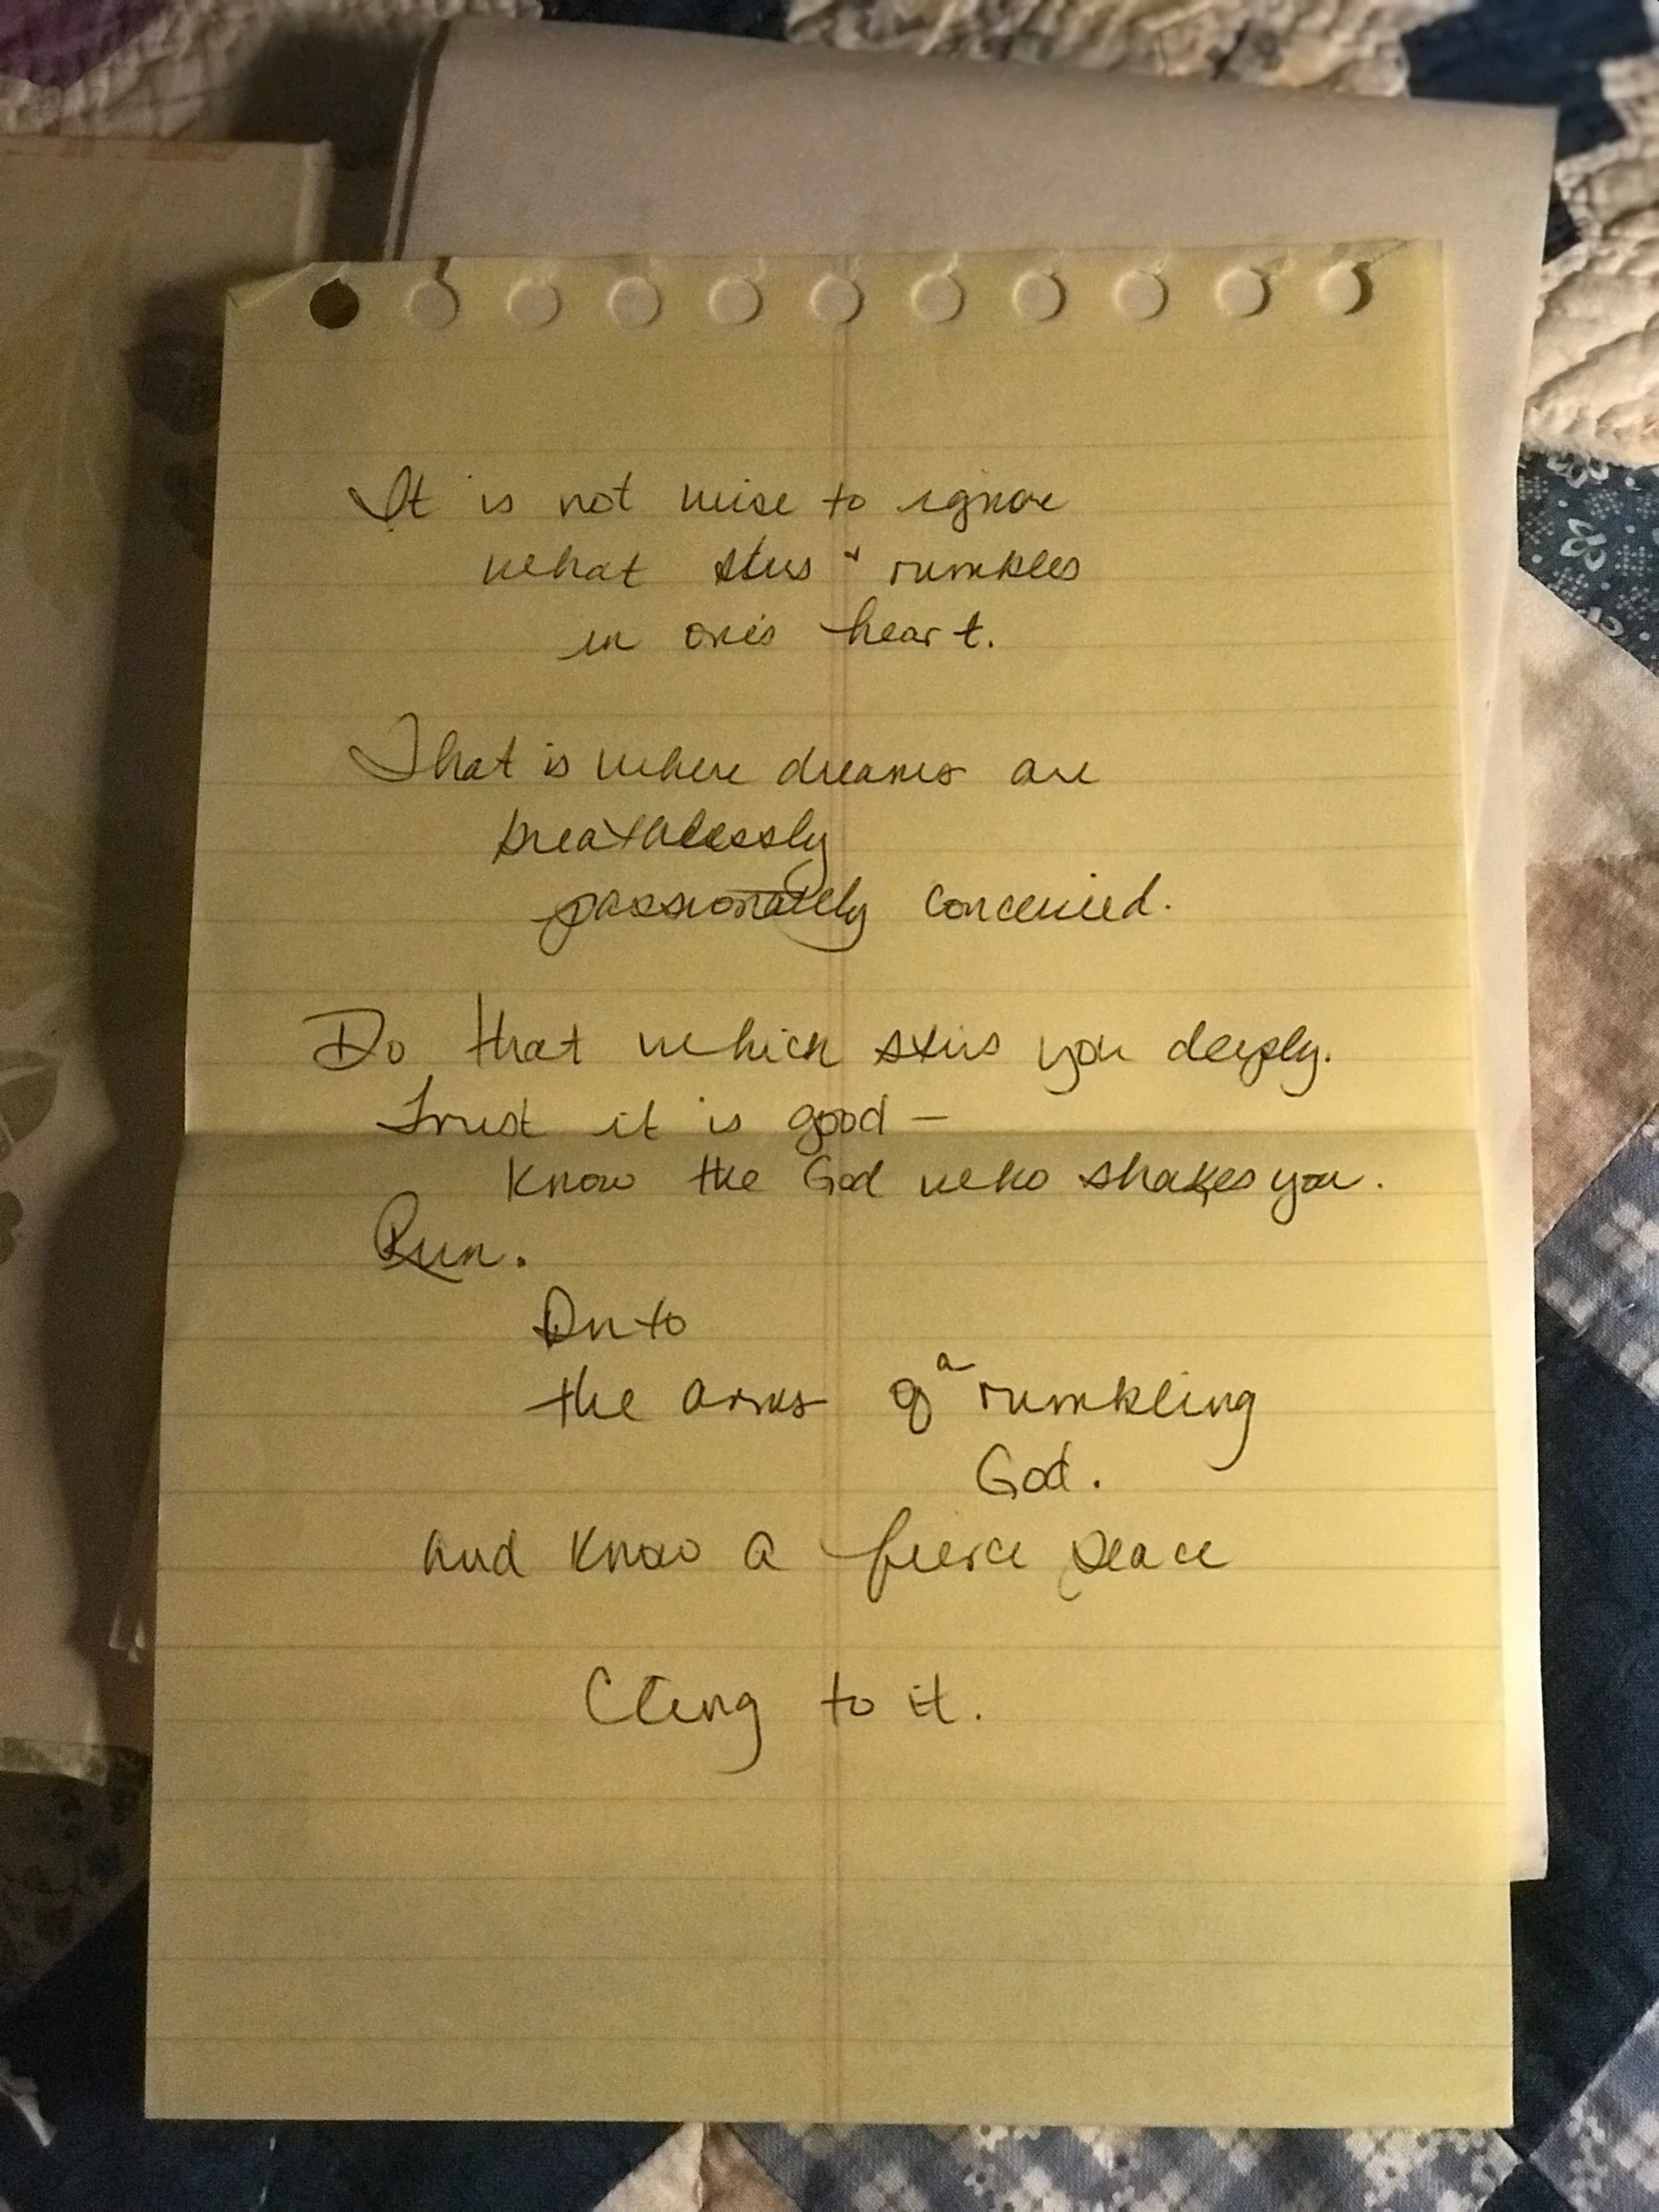 It is not wise to ignore
what stirs + rumbles
in one's heart.
That is where dreams are
breathlessly
passionately conceived.
Do that which stirs you deeply.
Trust it is good —
Know the God who shakes you.
Run.
Into
the arms of a rumbling
God.
And know a fierce peace
Cling to it.